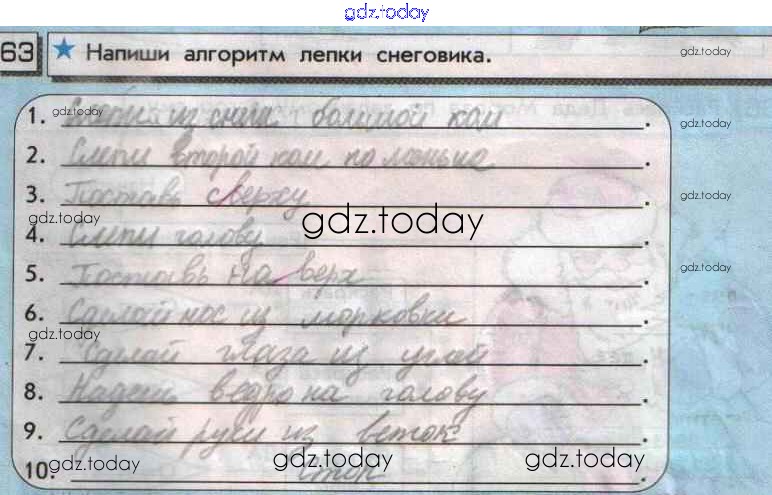 gdz.today
63 ★ Напиши алгоритм лепки снеговика. gdz.today
1. gdz.today Слепи из снега большой ком . gdz.today
2. Слепи второй ком поменьше .
3. Поставь сверху . gdz.today
gdz.today gdz.today
4. Слепи голову .
5. Поставь на верх . gdz.today
6. Сделай нос из морковки .
gdz.today
7. Сделай глаза из углей .
8. Надень ведро на голову .
9. Сделай руки из веток .
10. gdz.today Стоп gdz.today gdz.today .